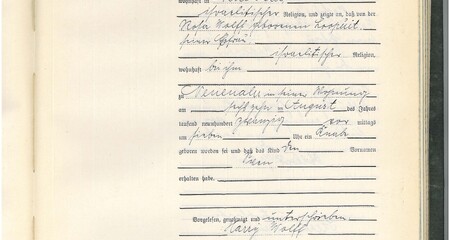 wohnhaft in
israelitischer Religion, und zeigte an, daß von der
Rosa Wolff geborenen
seiner Ehefrau
israelitischer Religion,
wohnhaft bei ihm
zu Neuenahr in seiner Wohnung
am sechszehn ten August des Jahres
tausend neunhundert zwanzig vor mittags
um sieben Uhr ein Knabe
geboren worden sei und daß das Kind den Vornamen
erhalten habe.
Vorgelesen, genehmigt und unterschrieben
Harry Wolff